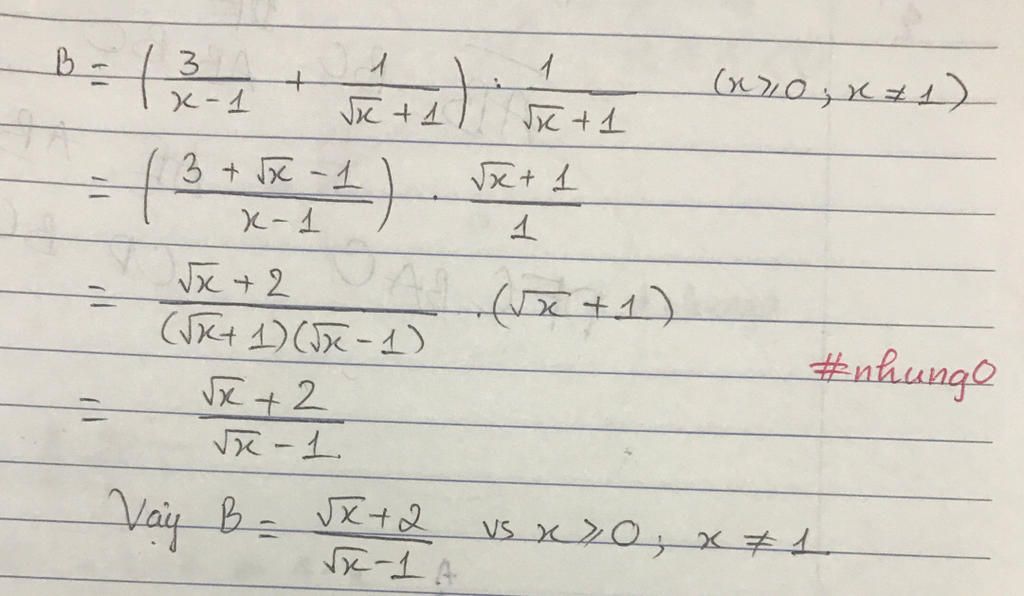 B = ( 3/(x-1) + 1/(√x + 1) ) : 1/(√x + 1) (x ⩾ 0 ; x ≠ 1)
= ( (3 + √x - 1)/(x - 1) ) . (√x + 1)/1
= (√x + 2)/((√x + 1)(√x - 1)) . (√x + 1)
#nhung0
= (√x + 2)/(√x - 1)
Vậy B = (√x + 2)/(√x - 1) vs x ⩾ 0 ; x ≠ 1